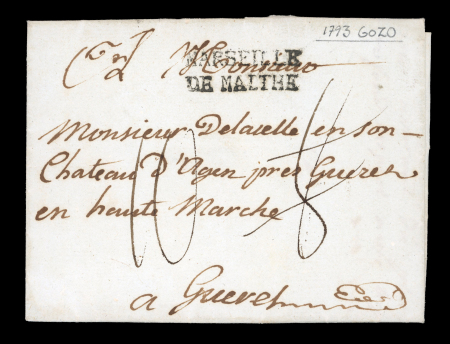 1793 GOZO
A Monsieur
MARSEILLE
DE MALTHE
Monsieur Delacelle en son
Chateau D'Ajen pres Gueret
en haute Marche
10 18
a Gueret